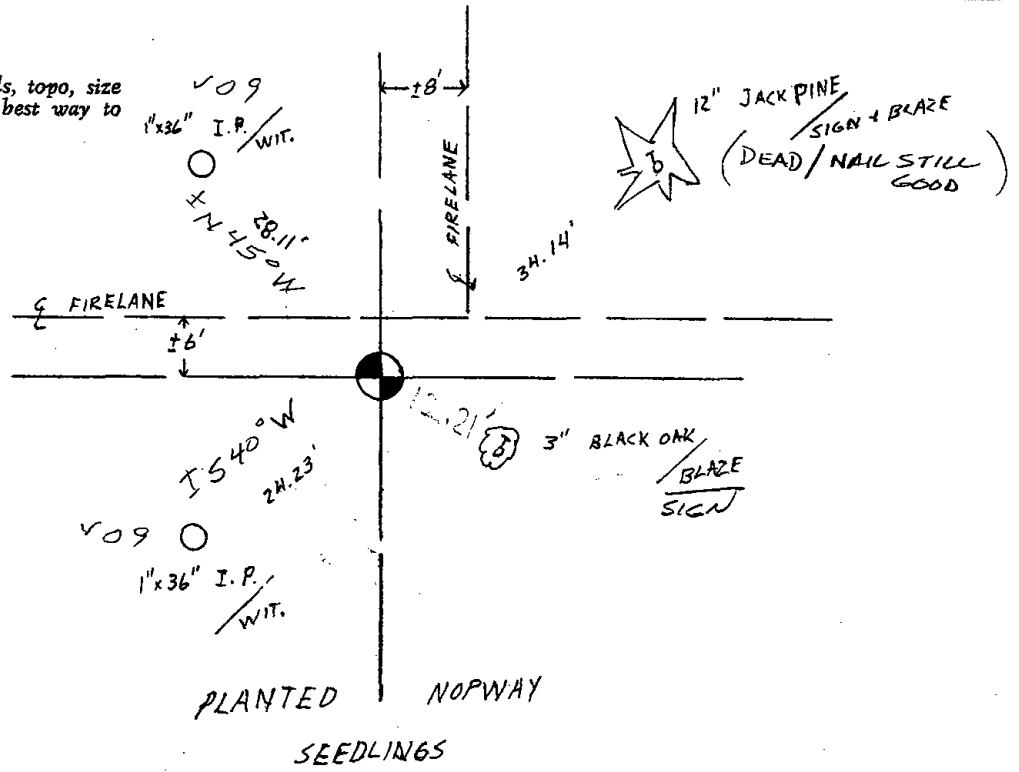 ls, topo, size
best way to
√ 09
1"x36" I.P./WIT.
28.11'
N 45° W
±8'
FIRELANE
12" JACK PINE
/SIGN + BLAZE
(DEAD / NAIL STILL
GOOD)
34.14'
℄ FIRELANE
±6'
12.21'
3" BLACK OAK
/BLAZE
SIGN
S 40° W
24.23'
√ 09
1"x36" I.P.
/WIT.
PLANTED NORWAY
SEEDLINGS